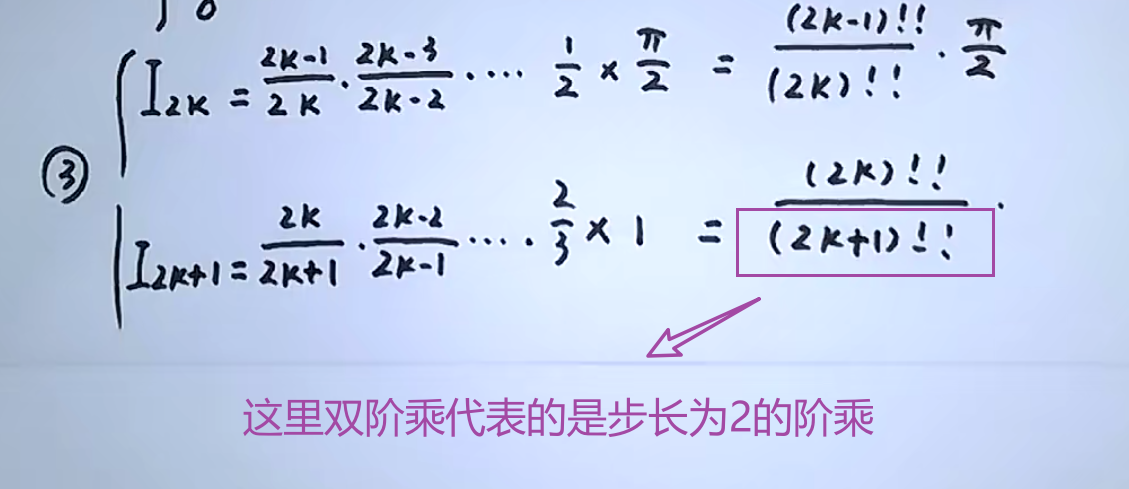 I₂ₖ = (2k-1)/(2k) · (2k-3)/(2k-2) ···· 1/2 × π/2 = (2k-1)!!/(2k)!! · π/2
③
I₂ₖ₊₁ = 2k/(2k+1) · (2k-2)/(2k-1) ···· 2/3 × 1 = (2k)!!/(2k+1)!! ·
这里双阶乘代表的是步长为2的阶乘